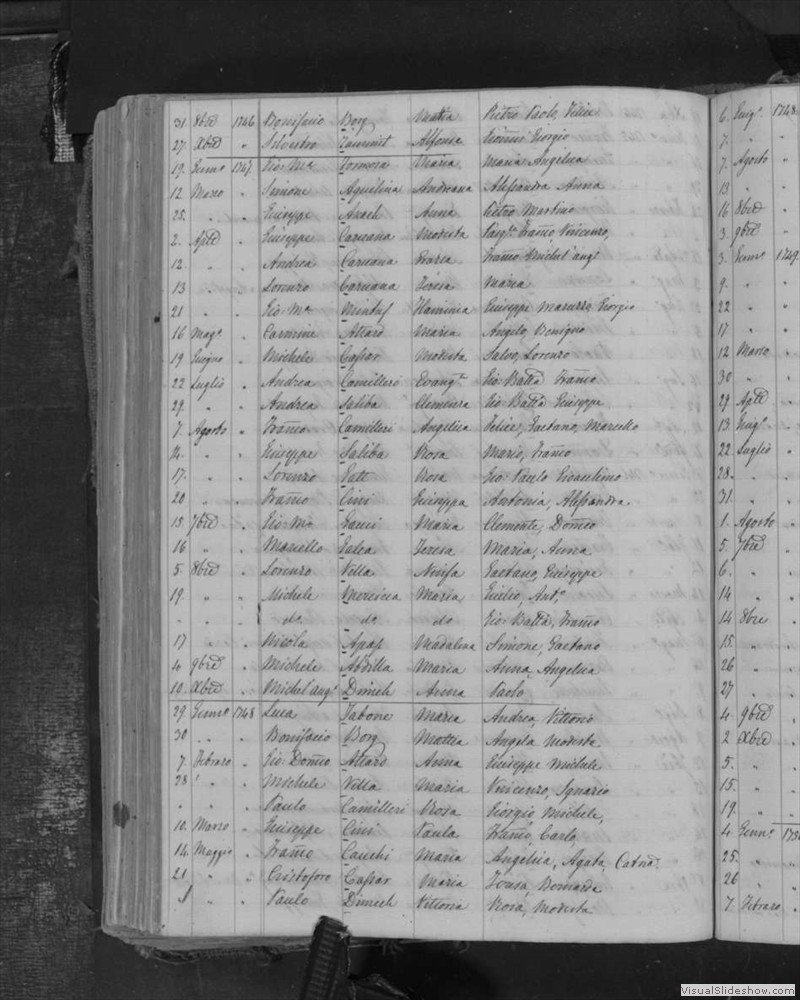 31. 8bre 1746 Bonifacio Borg Mattia Pietro Paolo, Felice
27. Xbre " Silvestro Zammit Alfonsa Giorgio
19. Genn.o 1747 Gio: M.a Formosa Maria Maria Angelica
12 Marzo " Simone Aquilina Andreana Alessandra Anna
25. " " Giuseppe Anna Pietro Martino
2. Aple " Giuseppe Caruana Modesta Franco Vincenzo,
12 " " Andrea Caruana Grazia Franco Michel'ang.o
13 " " Lorenzo Caruana Teresa Maria
21 " " Gio: M.a Mintuf Flaminia Giuseppe Giorgio
16 Mag.o " Carmine Attard Maria Angelo, Benigno
19 Giugno " Michele Cassar Modesta Salvo, Lorenzo
22 Luglio " Andrea Camilleri Evang.a Gio: Batta Franco
29. " " Andrea Saliba Clemenza Gio: Batta Giuseppe
7. Agosto " Franco Camilleri Angelica Felice, Gaetano, Marcello
" " Giuseppe Saliba Rosa Mario, Franco
17. " " Lorenzo Gatt Rosa Gio: Paulo
20 " " Franco Cini Giuseppa Antonia, Alessandra.
13. 7bre " Gio: M.a Gauci Maria Clemente, Domco
16 " " Marcello Galea Teresa Maria, Anna
5 8bre " Lorenzo Vella Ninfa Gaetano, Giuseppe
19. " " Michele Maria Ant.o
" " " do do do Gio: Batta, Franco
17 " " Nicola Apap Madalina Simone, Gaetano
4 9bre " Michele Abdilla Maria Anna, Angelica
10. Xbre " Michel'ang.o Dimech Anna Paolo
29. Genn.o 1748 Luca Tabone Maria Andrea, Vittorio
30 " " Bonifacio Borg Mattea Angela Modesta
7. Febraro " Gio: Domco Attard Anna Giuseppe Michele
28 " " Michele Vella Maria Vincenzo, Ignazio
" " " Paulo Camilleri Rosa Giorgio Michele,
10. Marzo " Giuseppe Cini Paula Franco, Carlo
14. Maggio " Franco Cauchi Maria Angelica, Agata, Catna
21 " " Cristoforo Cassar Maria Teresa, Bernarda
" " Paulo Dimech Vittoria Rosa, Modesta
6. Giug.o 1748
7. " "
7. Agosto "
13 " "
16 8bre "
3. 9bre "
3. Genn.o 1749
9. " "
22 " "
17 " "
12 Marzo "
30 " "
29 Aple "
13. Giug.o "
22 Luglio "
28. " "
31. " "
1. Agosto "
5. 7bre "
6. " "
14 " "
14 8bre
15. "
26 "
27 "
4. 9bre "
2 Xbre "
5. "
15. "
19. "
4 Genn.o
25. "
26 "
7. Febraro
VisualSlideshow.com